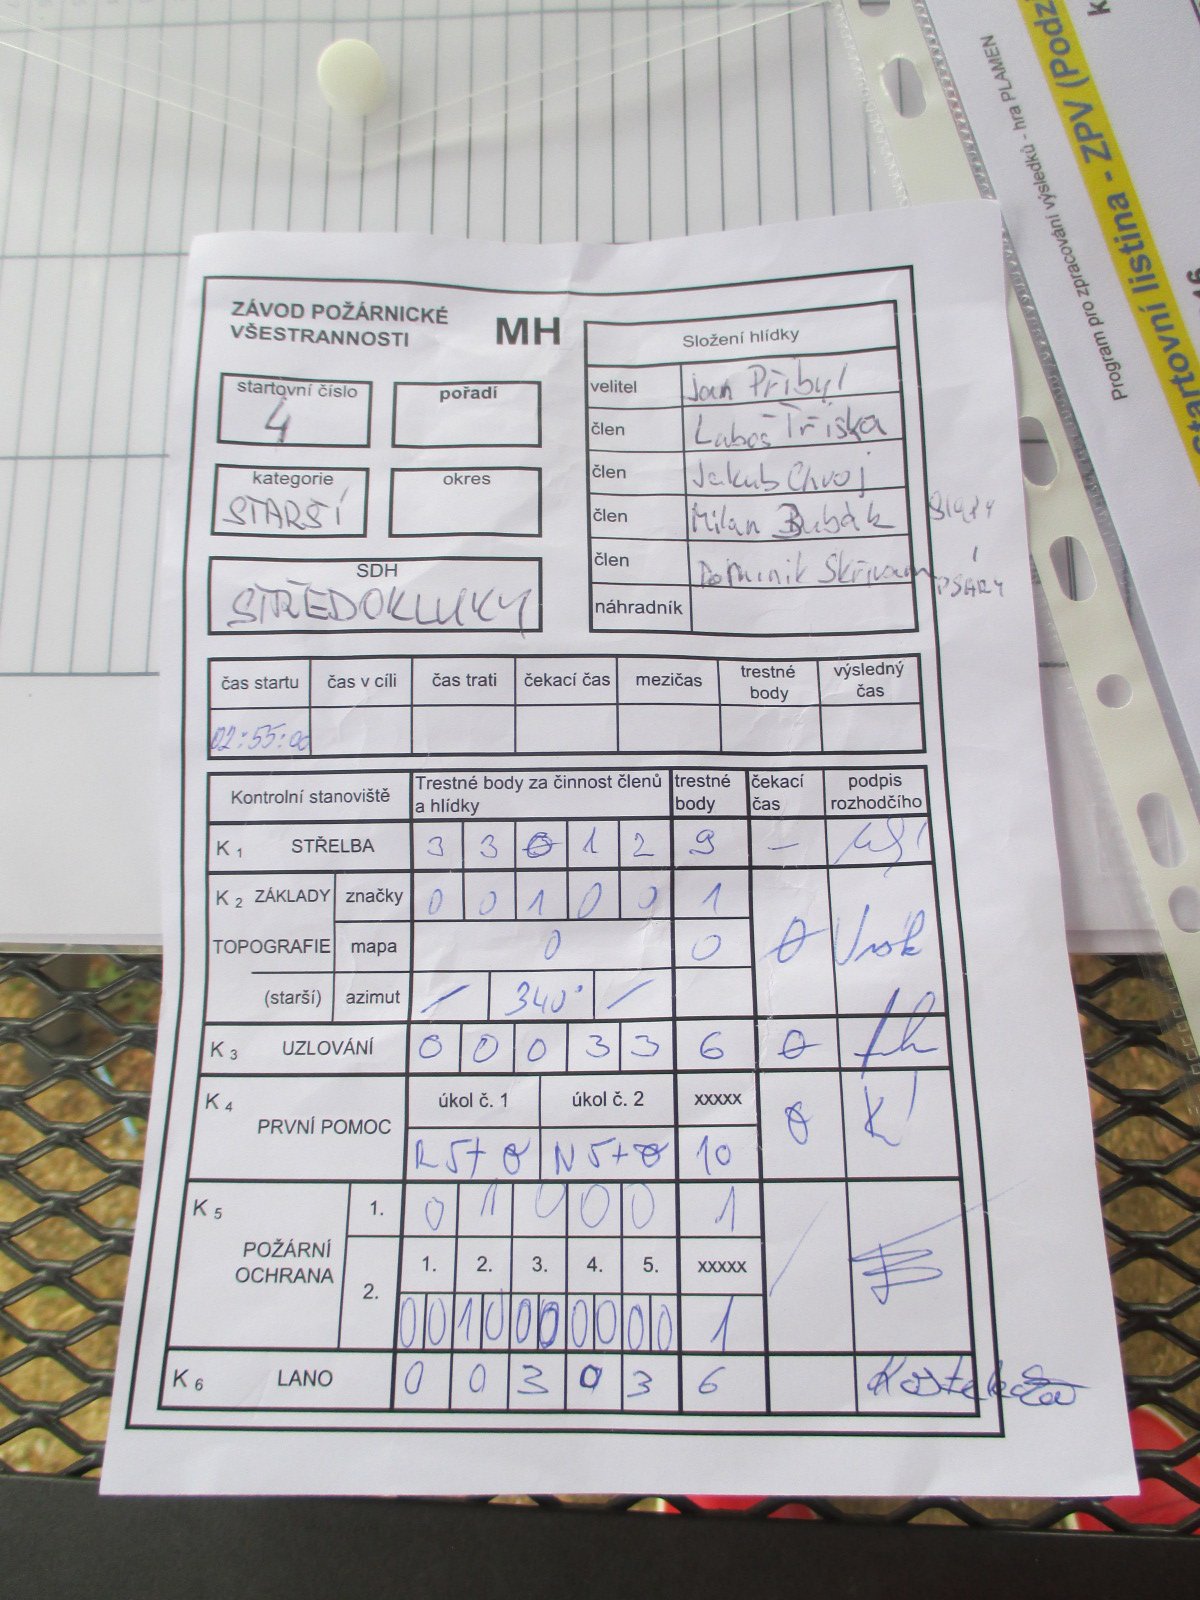 Startovní listina - ZPV (Podzi
Program pro zpracování výsledků - hra PLAMEN
ZÁVOD POŽÁRNICKÉ
VŠESTRANNOSTI
MH
startovní číslo
4
pořadí
kategorie
STARŠÍ
okres
SDH
STŘEDOKLUKY
Složení hlídky
velitel Jan Přibyl
člen Luboš Tříska
člen Jakub Chvoj
člen Milan Bubák
člen Dominik Skřivan
PSÁRY
náhradník
čas startu čas v cíli čas trati čekací čas mezičas trestné body výsledný čas
02:55:00
Kontrolní stanoviště Trestné body za činnost členů a hlídky trestné body čekací čas podpis rozhodčího
K 1 STŘELBA 3 3 0 1 2 9 –
K 2 ZÁKLADY značky 0 0 1 0 0 1
TOPOGRAFIE mapa 0 0 0
(starší) azimut / 340° /
K 3 UZLOVÁNÍ 0 0 0 3 3 6 0
K 4 úkol č. 1 úkol č. 2 xxxxx
PRVNÍ POMOC R 5+0 N 5+0 10 0
K 5 1. 0 1 0 0 0 1
POŽÁRNÍ
OCHRANA
2. 1. 2. 3. 4. 5. xxxxx
0 0 1 0 0 0 0 0 0 0 1
K 6 LANO 0 0 3 0 3 6